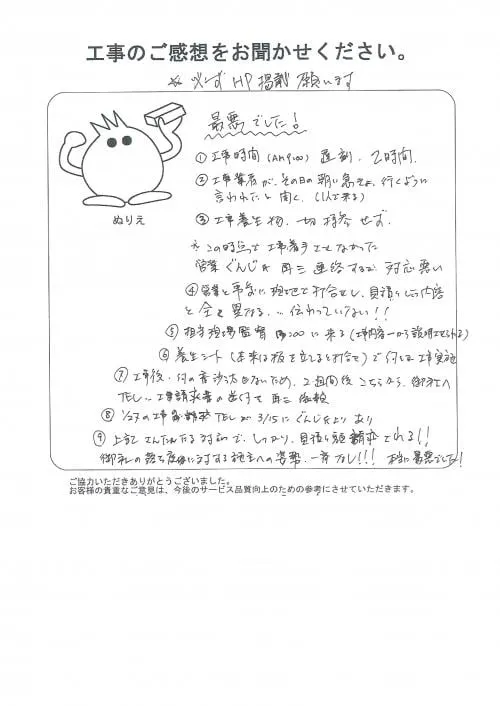 工事のご感想をお聞かせください。
※ 必ず HP 掲載 願います
最悪でした!
① 工事時間 (AM9:00) 遅刻. 2時間.
② 工事業者が、その日の朝に急きょ、行くように
言われたと聞く. (1人で来る)
③ 工事養生物. 一切 持参 せず.
ぬりえ
※ この時点で 工事着手させなかった
営業 ぐんじ氏 再三 連絡するが 対応悪い
④ 営業と事前に現地で打合せし、見積りした内容
と全く異なる. 伝わっていない!!
⑤ 担当現場監督 に来る (工事内容一から説明させられる)
⑥ 養生シート (出来る板を立てると打合せ) で 工事実施
⑦ 工事後、何の音沙汰もないため、2週間後こちらから、御社へ
TEL. 工事請求書の送付を再三依頼
⑧ 1/27の工事 TELが 3/15にぐんじ氏よりあり
⑨ 上記さんたんたる対応で、しっかり、見積り額請求される!!
御社の に対する施主への姿勢、一審なし!!! 本当に最悪でした!
ご協力いただきありがとうございました。
お客様の貴重なご意見は、今後のサービス品質向上のための参考にさせていただきます。